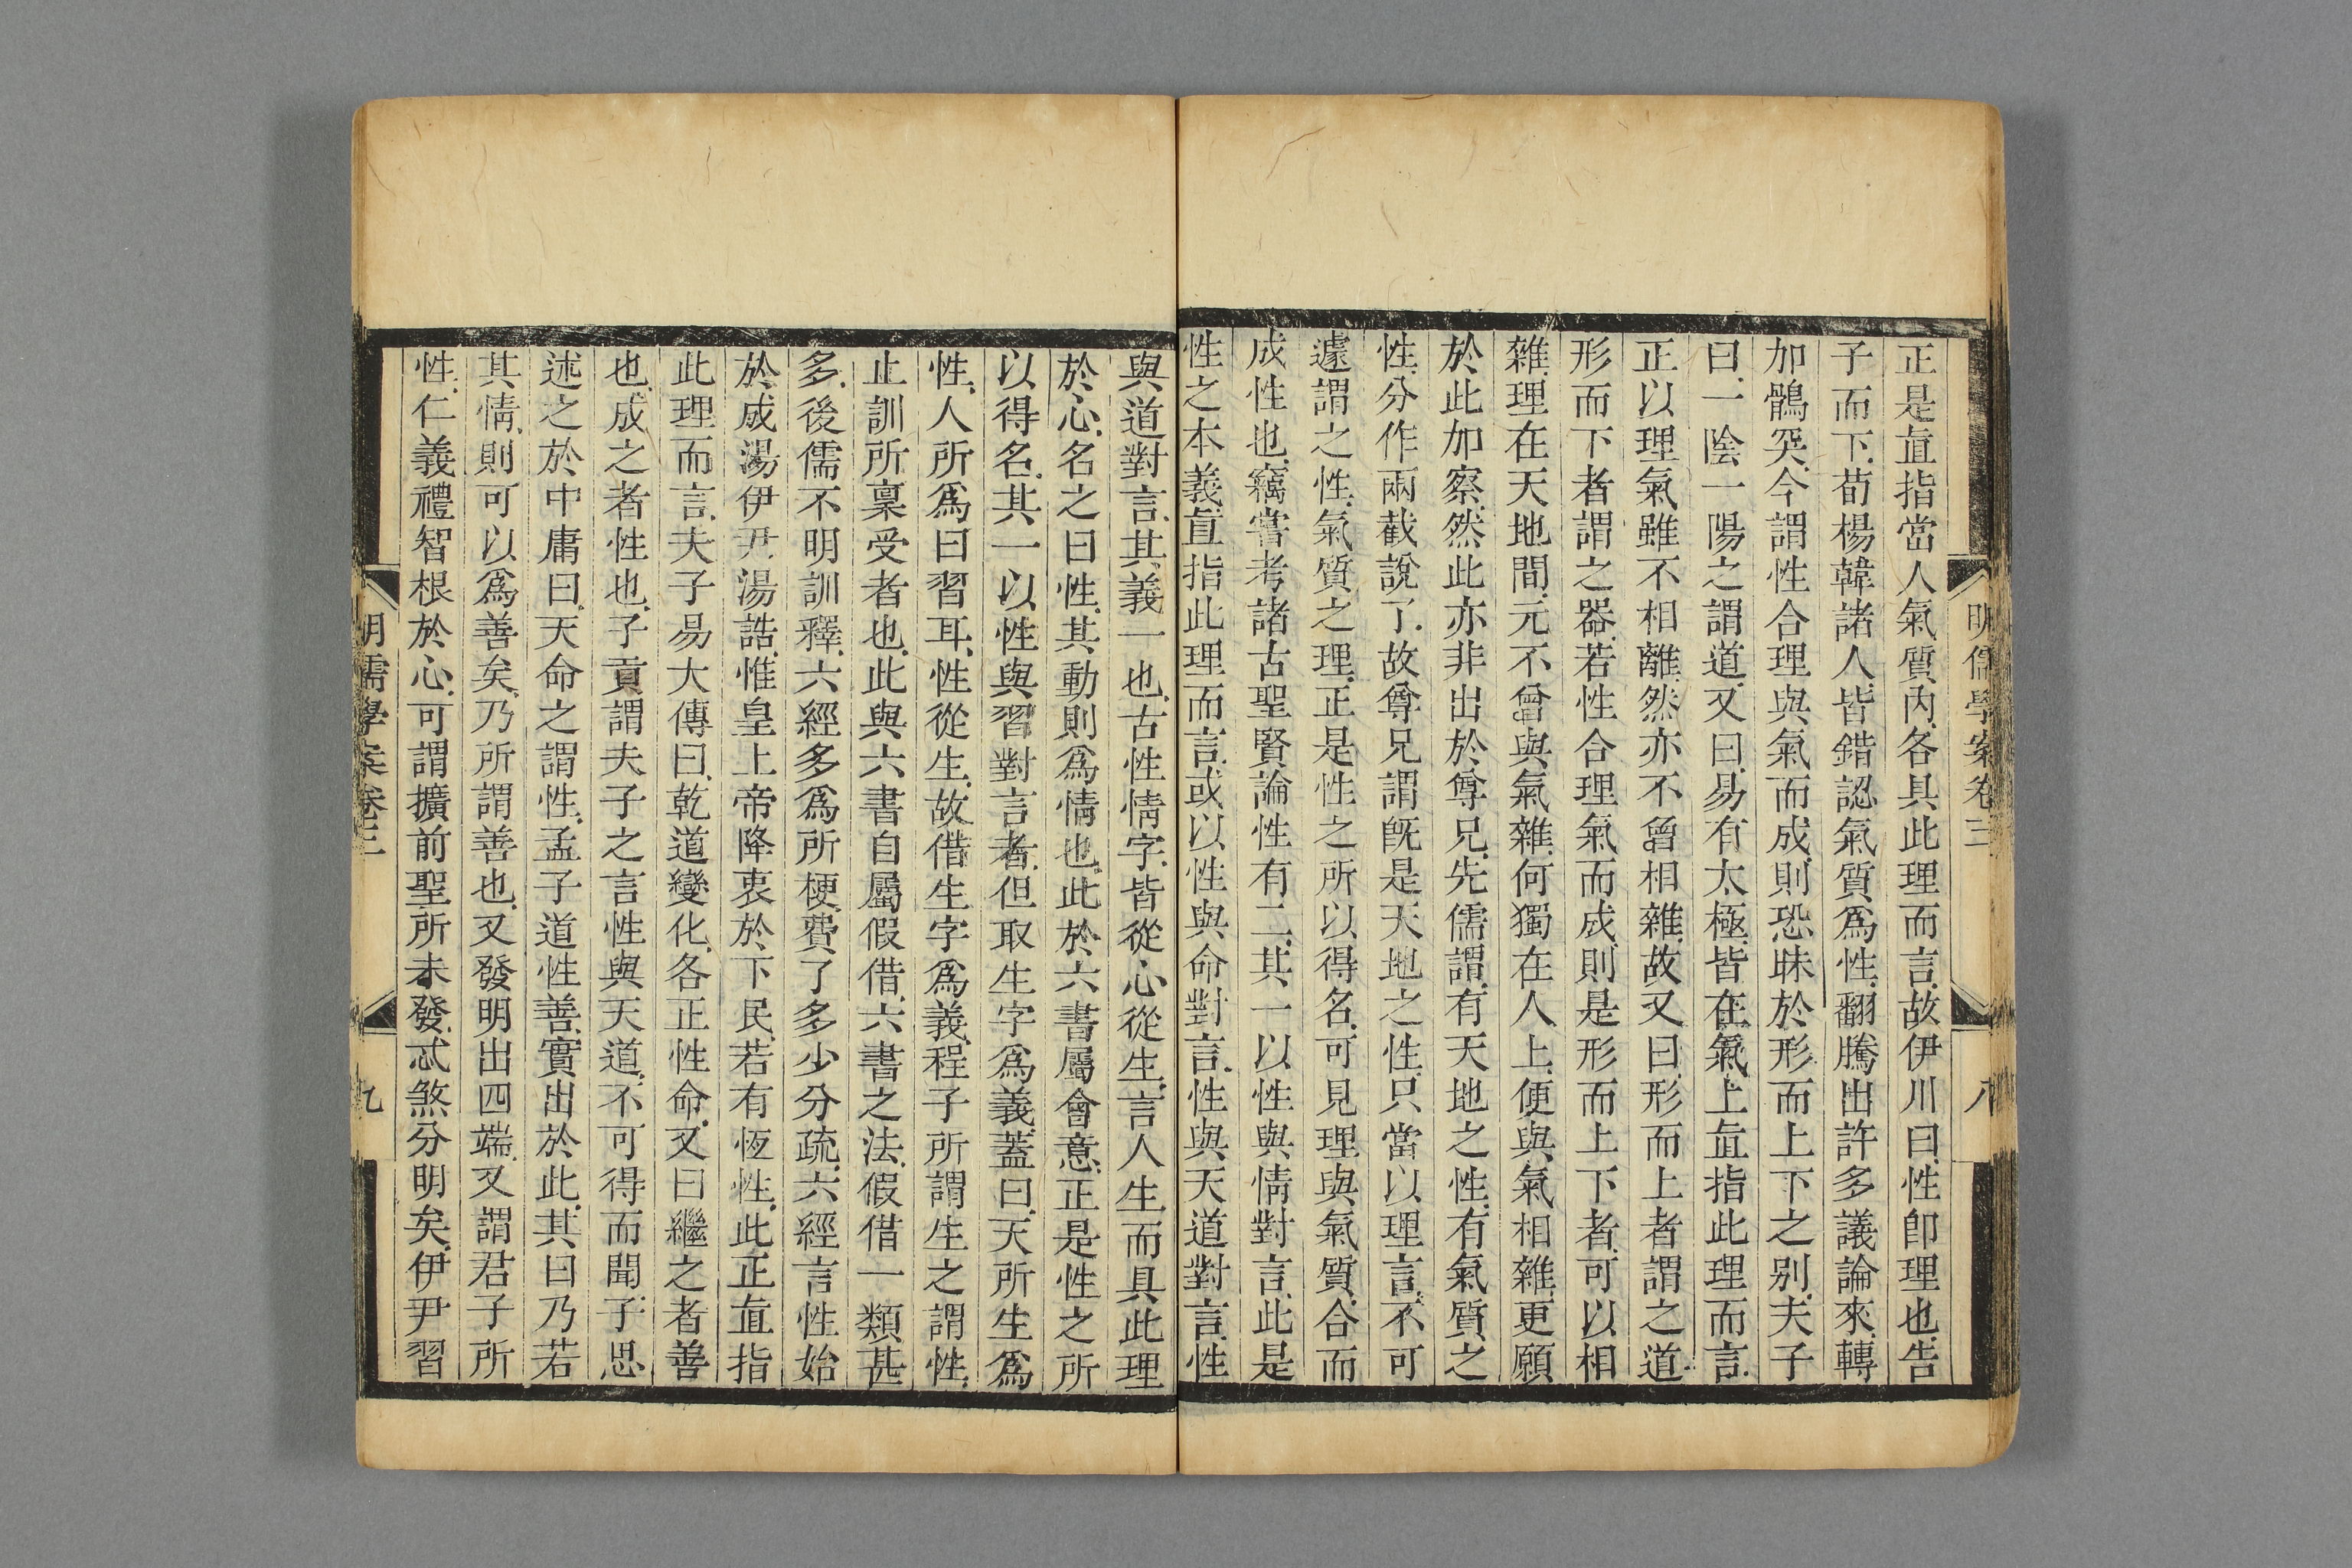 明儒學案卷三
八
正是直指當人氣質內各具此理而言故伊川曰性卽理也告
子而下荀楊韓諸人皆錯認氣質爲性翻騰出許多議論來轉
加鶻突今謂性合理與氣而成則恐昧於形而上下之別夫子
曰一陰一陽之謂道又曰易有太極皆在氣上直指此理而言
正以理氣雖不相離然亦不曾相雜故又曰形而上者謂之道
形而下者謂之器若性合理氣而成則是形而上下者可以相
雜理在天地間元不曾與氣雜何獨在人上便與氣相雜更願
於此加察然此亦非出於尊兄先儒謂有天地之性有氣質之
性分作兩截說了故尊兄謂旣是天地之性只當以理言不可
遽謂之性氣質之理正是性之所以得名可見理與氣質合而
成性也竊嘗考諸古聖賢論性有二其一以性與情對言此是
性之本義直指此理而言或以性與命對言性與天道對言性
與道對言其義一也古性情字皆從心從生言人生而具此理
於心名之曰性其動則爲情也此於六書屬會意正是性之所
以得名其一以性與習對言者但取生字爲義蓋曰天所生爲
性人所爲曰習耳性從生故借生字爲義程子所謂生之謂性
止訓所稟受者也此與六書自屬假借六書之法假借一類甚
多後儒不明訓釋六經多爲所梗費了多少分疏六經言性始
於成湯伊尹湯誥惟皇上帝降衷於下民若有恆性此正直指
此理而言夫子易大傳曰乾道變化各正性命又曰繼之者善
也成之者性也子貢謂夫子之言性與天道不可得而聞子思
述之於中庸曰天命之謂性孟子道性善實出於此其曰乃若
其情則可以爲善矣乃所謂善也又發明出四端又謂君子所
性仁義禮智根於心可謂擴前聖所未發忒煞分明矣伊尹習
明儒學案卷三
九